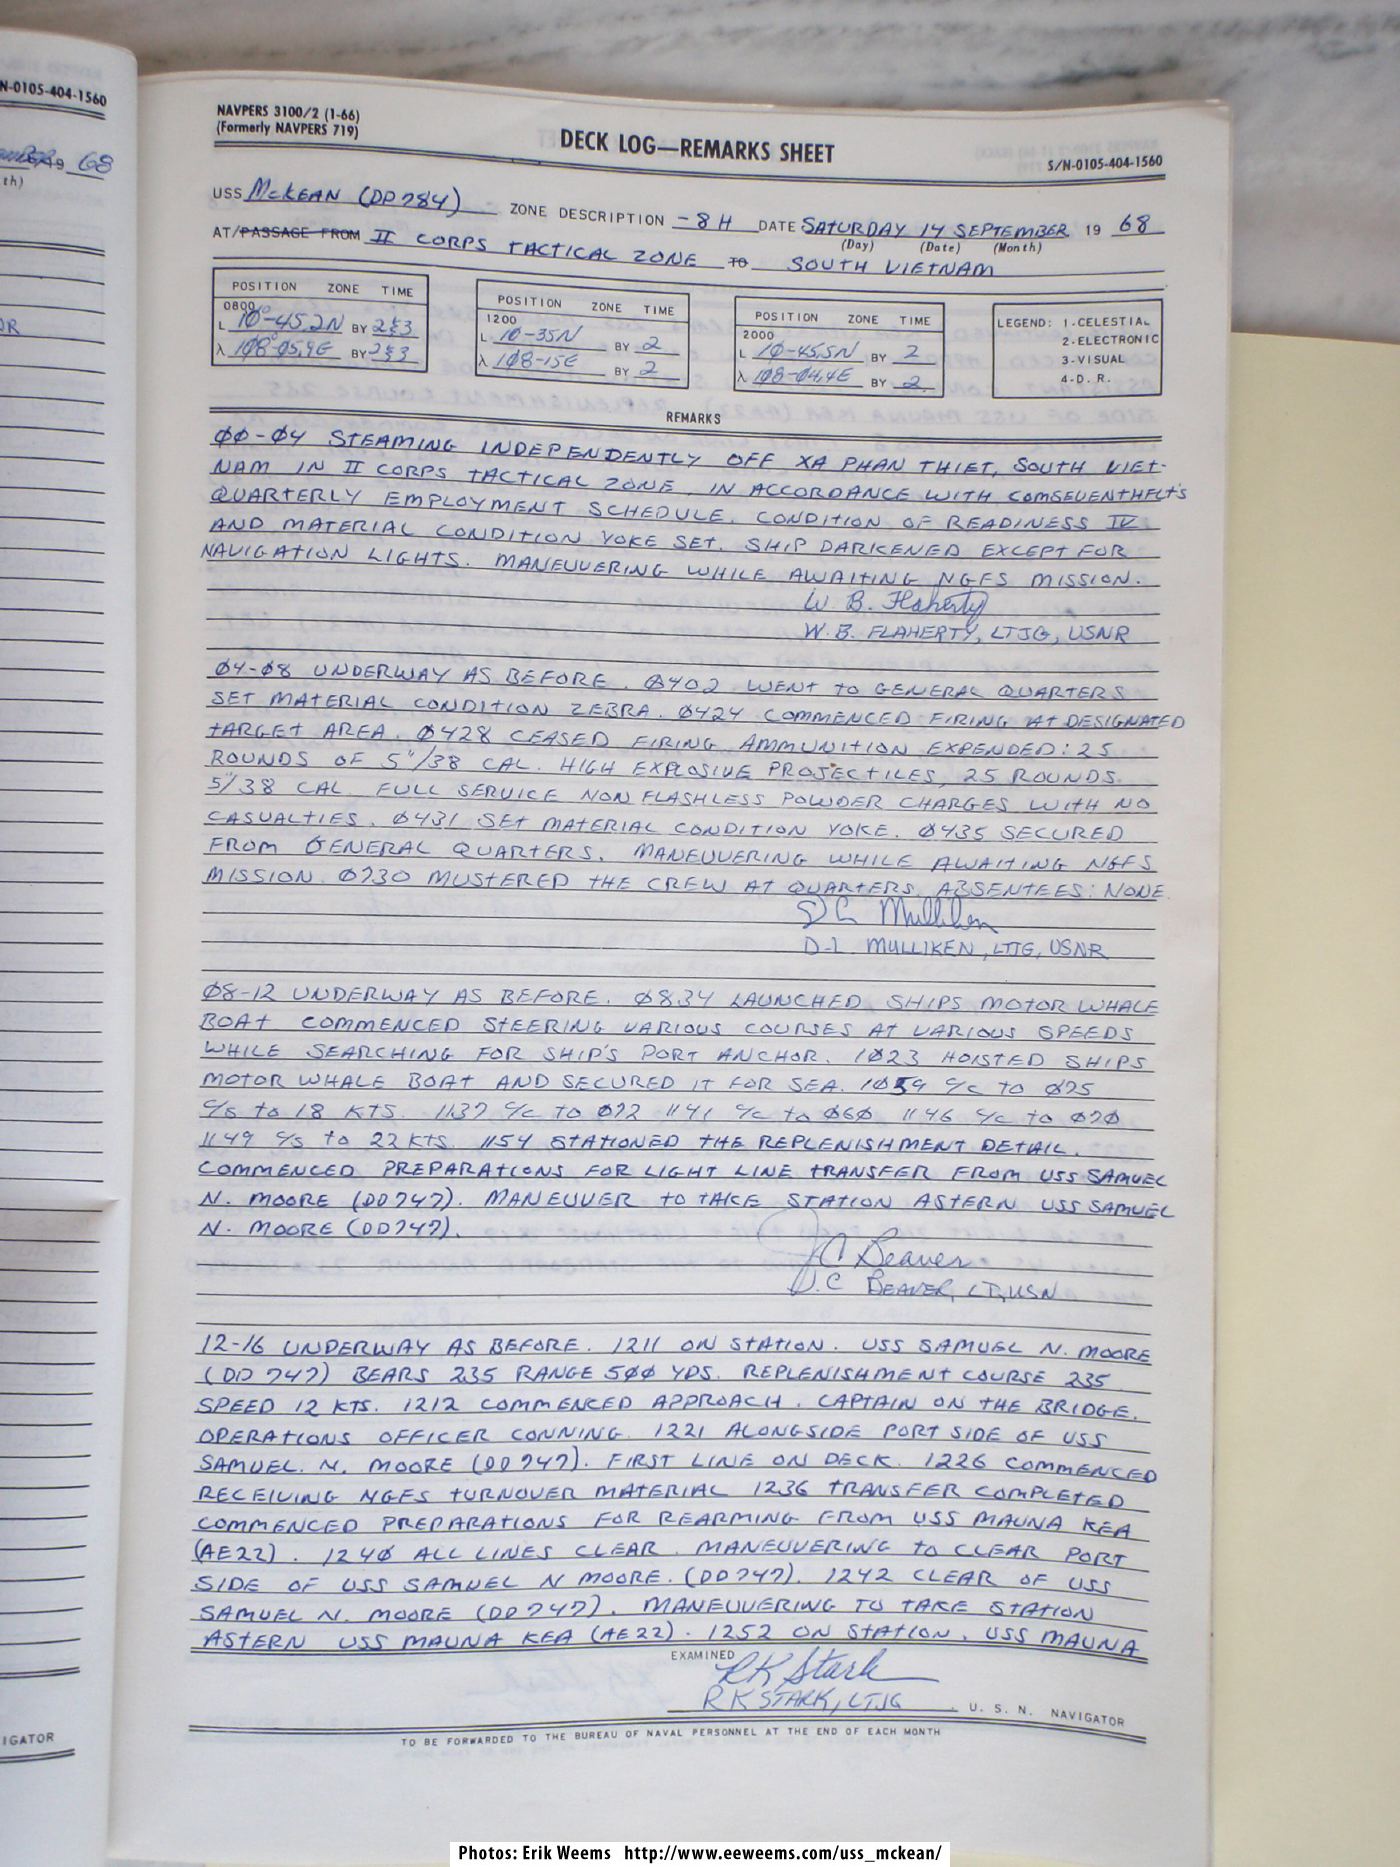 N-0105-404-1560
19 68
th)
OR
IGATOR
NAVPERS 3100/2 (1-66)
(Formerly NAVPERS 719)
DECK LOG—REMARKS SHEET
S/N-0105-404-1560
USS McKEAN (DD784) ZONE DESCRIPTION -8H DATE SATURDAY 14 SEPTEMBER 19 68
(Day) (Date) (Month)
AT/PASSAGE FROM II CORPS TACTICAL ZONE TO SOUTH VIETNAM
POSITION ZONE TIME
0800
L 10°-45.2N BY 2&3
λ 108°-05.9E BY 2&3
POSITION ZONE TIME
1200
L 10-35N BY 2
λ 108-15E BY 2
POSITION ZONE TIME
2000
L 10-45.5N BY 2
λ 108-04.4E BY 2
LEGEND: 1-CELESTIAL
2-ELECTRONIC
3-VISUAL
4-D. R.
REMARKS
00-04 STEAMING INDEPENDENTLY OFF XA PHAN THIET, SOUTH VIET-
NAM IN II CORPS TACTICAL ZONE, IN ACCORDANCE WITH COMSEVENTHFLT'S
QUARTERLY EMPLOYMENT SCHEDULE. CONDITION OF READINESS IV
AND MATERIAL CONDITION YOKE SET. SHIP DARKENED EXCEPT FOR
NAVIGATION LIGHTS. MANEUVERING WHILE AWAITING NGFS MISSION.
W B. Flaherty
W. B. FLAHERTY, LTJG, USNR
04-08 UNDERWAY AS BEFORE. 0402 WENT TO GENERAL QUARTERS
SET MATERIAL CONDITION ZEBRA. 0424 COMMENCED FIRING AT DESIGNATED
TARGET AREA. 0428 CEASED FIRING. AMMUNITION EXPENDED: 25
ROUNDS OF 5"/38 CAL. HIGH EXPLOSIVE PROJECTILES, 25 ROUNDS
5"/38 CAL. FULL SERVICE NON FLASHLESS POWDER CHARGES WITH NO
CASUALTIES. 0431 SET MATERIAL CONDITION YOKE. 0435 SECURED
FROM GENERAL QUARTERS. MANEUVERING WHILE AWAITING NGFS
MISSION. 0730 MUSTERED THE CREW AT QUARTERS. ABSENTEES: NONE.
D L Mulliken
D. L. MULLIKEN, LTJG, USNR
08-12 UNDERWAY AS BEFORE. 0834 LAUNCHED SHIPS MOTOR WHALE
BOAT COMMENCED STEERING VARIOUS COURSES AT VARIOUS SPEEDS
WHILE SEARCHING FOR SHIP'S PORT ANCHOR. 1023 HOISTED SHIPS
MOTOR WHALE BOAT AND SECURED IT FOR SEA. 1059 C/C TO 075
C/S TO 18 KTS. 1137 C/C TO 072 1141 C/C TO 060 1146 C/C TO 070
1149 C/S TO 22 KTS. 1154 STATIONED THE REPLENISHMENT DETAIL.
COMMENCED PREPARATIONS FOR LIGHT LINE TRANSFER FROM USS SAMUEL
N. MOORE (DD747). MANEUVER TO TAKE STATION ASTERN USS SAMUEL
N. MOORE (DD747).
J C Beaver
J. C BEAVER, LT, USN
12-16 UNDERWAY AS BEFORE. 1211 ON STATION. USS SAMUEL N. MOORE
(DD 747) BEARS 235 RANGE 500 YDS. REPLENISHMENT COURSE 235
SPEED 12 KTS. 1212 COMMENCED APPROACH. CAPTAIN ON THE BRIDGE,
OPERATIONS OFFICER CONNING. 1221 ALONGSIDE PORT SIDE OF USS
SAMUEL. N. MOORE (DD747). FIRST LINE ON DECK. 1226 COMMENCED
RECEIVING NGFS TURNOVER MATERIAL 1236 TRANSFER COMPLETED
COMMENCED PREPARATIONS FOR REARMING FROM USS MAUNA KEA
(AE22). 1240 ALL LINES CLEAR. MANEUVERING TO CLEAR PORT
SIDE OF USS SAMUEL N MOORE. (DD747). 1242 CLEAR OF USS
SAMUEL N. MOORE (DD747). MANEUVERING TO TAKE STATION
ASTERN USS MAUNA KEA (AE22). 1252 ON STATION. USS MAUNA
EXAMINED
R K Stark
R K STARK, LTJG , U. S. N. NAVIGATOR
TO BE FORWARDED TO THE BUREAU OF NAVAL PERSONNEL AT THE END OF EACH MONTH
Photos: Erik Weems http://www.eeweems.com/uss_mckean/